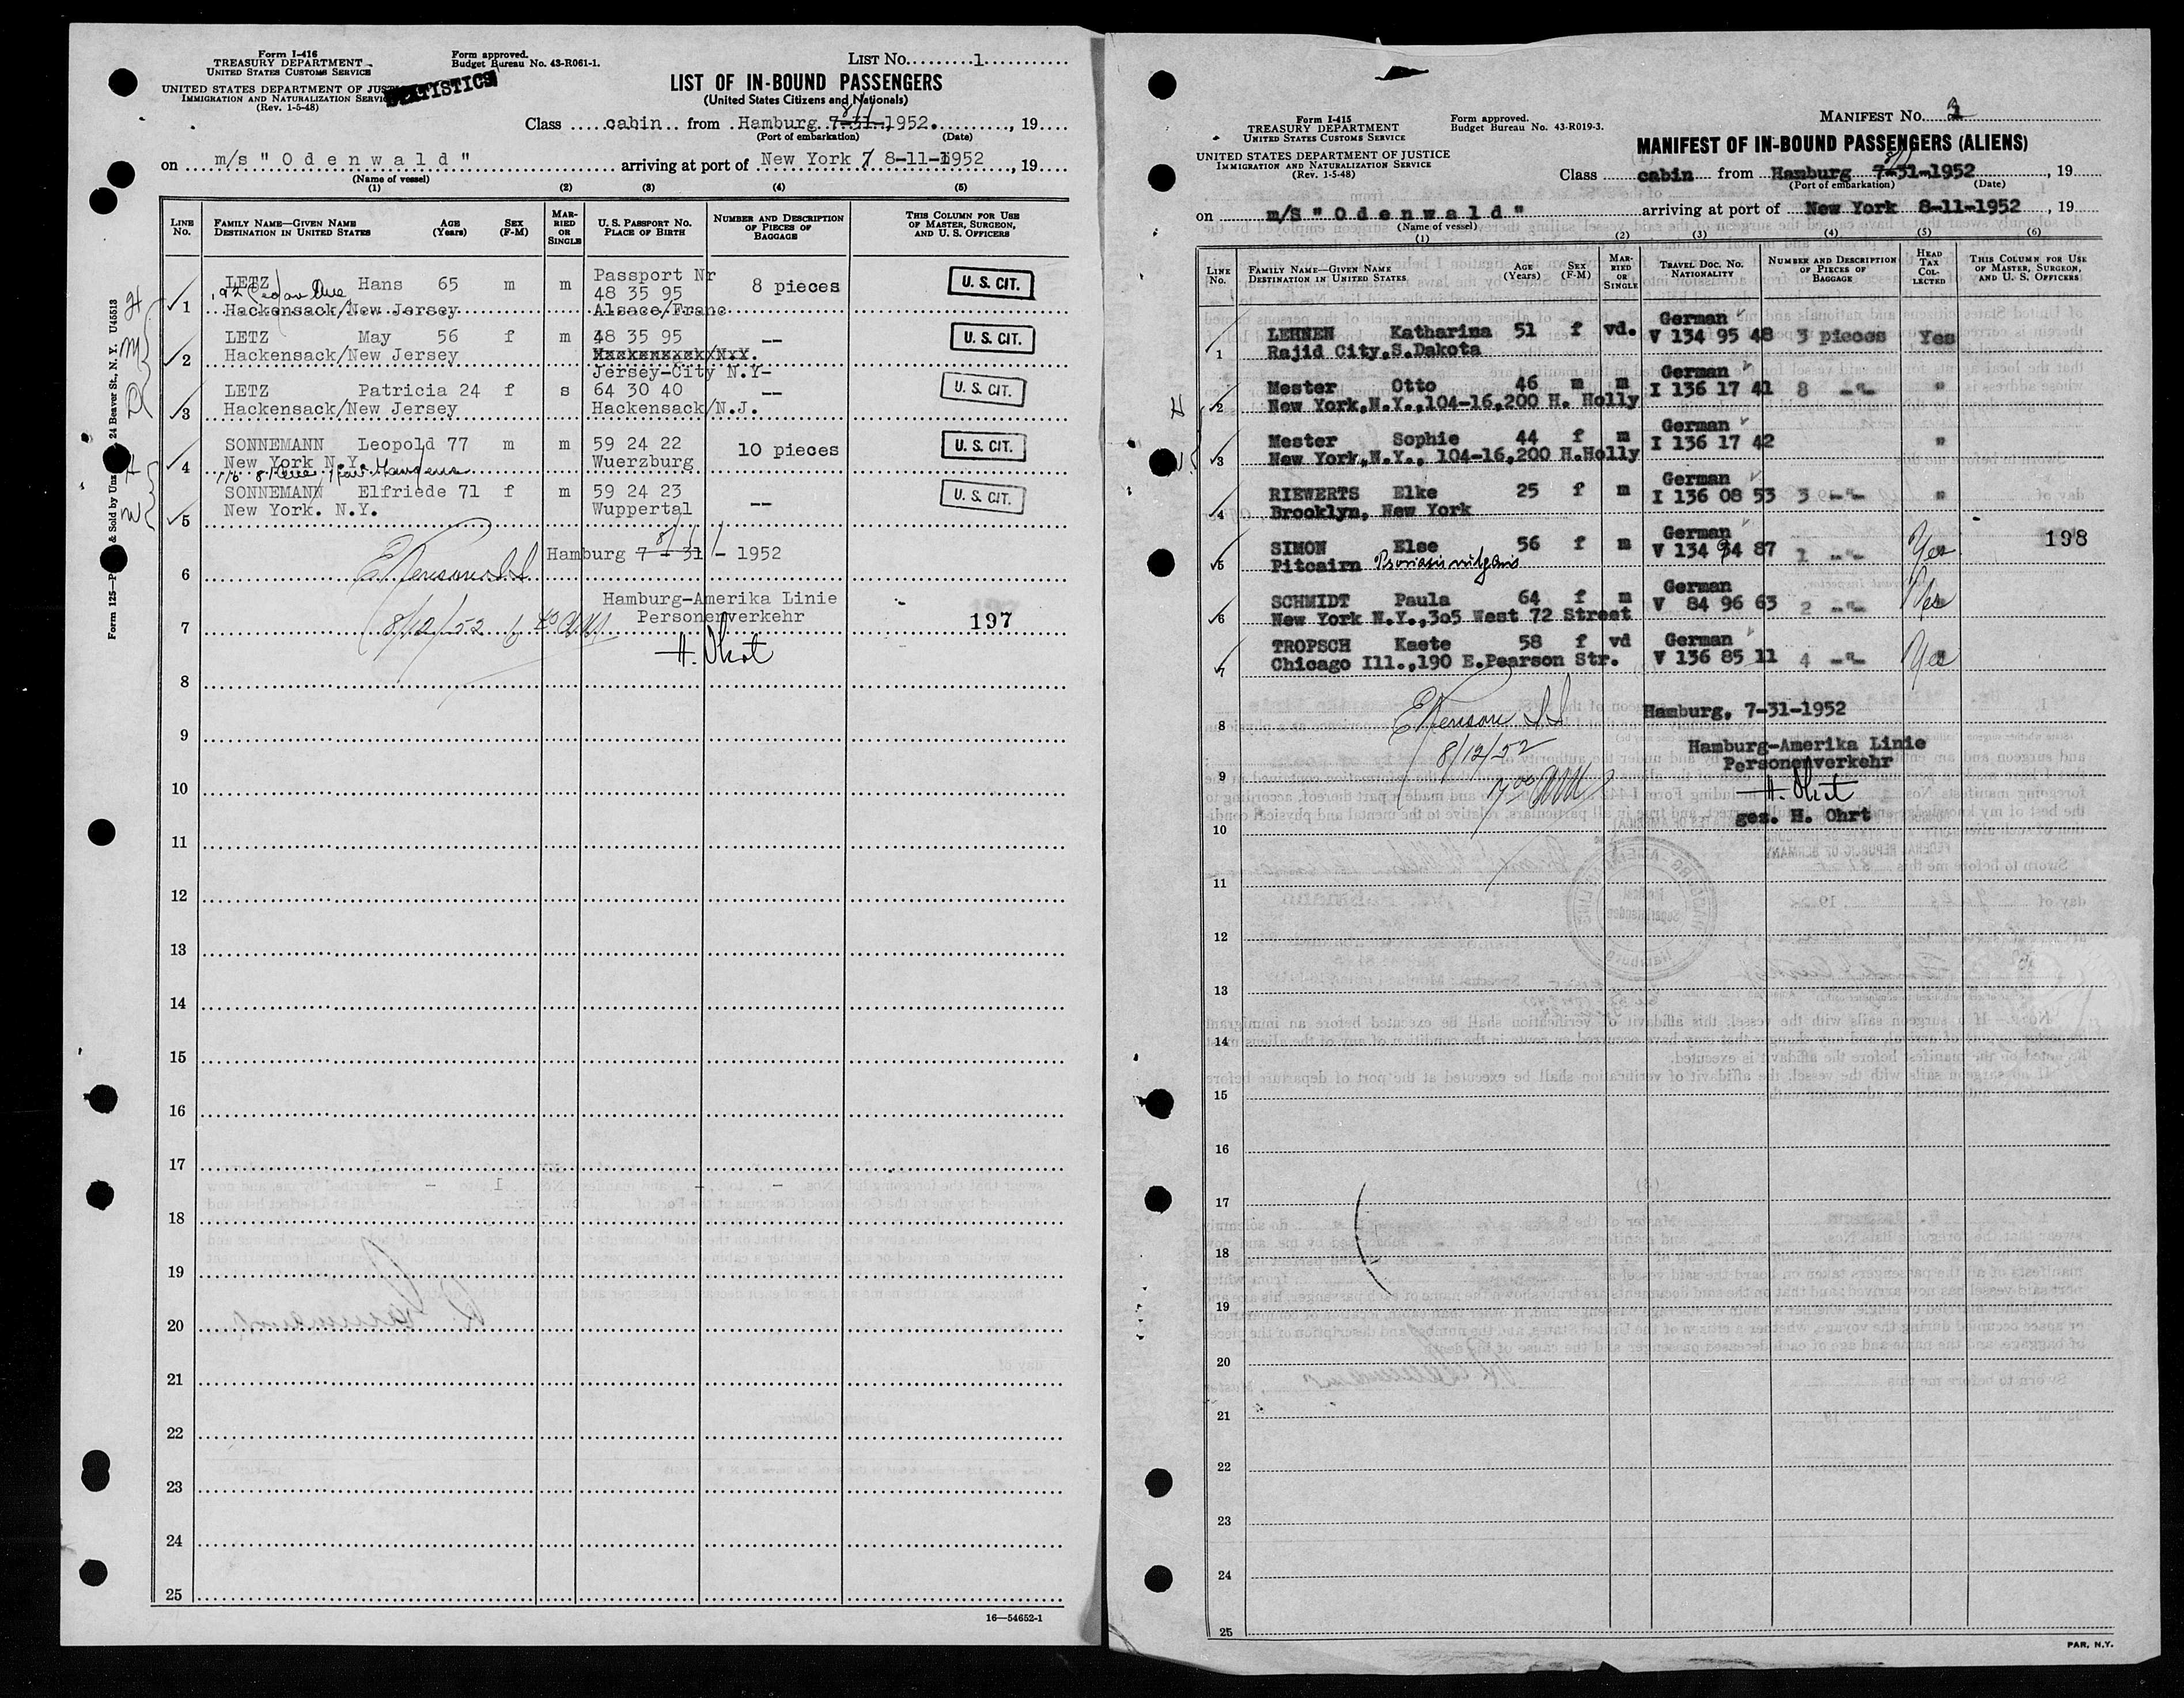 Form I-416
TREASURY DEPARTMENT
UNITED STATES CUSTOMS SERVICE
UNITED STATES DEPARTMENT OF JUSTICE
IMMIGRATION AND NATURALIZATION SERVICE
(Rev. 1-5-48)
STATISTICS
Form approved.
Budget Bureau No. 43-R061-1.
LIST No. 1
LIST OF IN-BOUND PASSENGERS
(United States Citizens and Nationals)
Class cabin from Hamburg 7-31-1952. 8/1, 19
(Port of embarkation) (Date)
on m/s "Odenwald" arriving at port of New York 8-11-1952, 19
(Name of vessel)
(1) (2) (3) (4) (5)
LINE No. FAMILY NAME—GIVEN NAME DESTINATION IN UNITED STATES AGE (Years) SEX (F-M) MARRIED OR SINGLE U. S. PASSPORT NO. PLACE OF BIRTH NUMBER AND DESCRIPTION OF PIECES OF BAGGAGE THIS COLUMN FOR USE OF MASTER, SURGEON, AND U. S. OFFICERS
1 LETZ Hans 65 m m Passport Nr 48 35 95 8 pieces U. S. CIT.
192 Cedar Ave
Hackensack/New Jersey Alsace/Franc
2 LETZ May 56 f m 48 35 95 -- U. S. CIT.
Hackensack/New Jersey Hackensack/N.Y.
Jersey-City N.Y-
3 LETZ Patricia 24 f s 64 30 40 -- U. S. CIT.
Hackensack/New Jersey Hackensack/N.J.
4 SONNEMANN Leopold 77 m m 59 24 22 10 pieces U. S. CIT.
New York N.Y. Wuerzburg
5 SONNEMANN Elfriede 71 f m 59 24 23 -- U. S. CIT.
New York. N.Y. Wuppertal
6 Hamburg 7 - 31 - 1952 8/1
Hamburg-Amerika Linie
7 Personenverkehr 197
8/12/52
H. Ohrt
8
9
10
11
12
13
14
15
16
17
18
19
20
21
22
23
24
25
16—54652-1
Form I-415
TREASURY DEPARTMENT
UNITED STATES CUSTOMS SERVICE
UNITED STATES DEPARTMENT OF JUSTICE
IMMIGRATION AND NATURALIZATION SERVICE
(Rev. 1-5-48)
Form approved.
Budget Bureau No. 43-R019-3.
MANIFEST No.
MANIFEST OF IN-BOUND PASSENGERS (ALIENS)
Class cabin from Hamburg 7-31-1952 8/1, 19
(Port of embarkation) (Date)
on m/S "Odenwald" arriving at port of New York 8-11-1952, 19
(Name of vessel)
(1) (2) (3) (4) (5) (6)
LINE No. FAMILY NAME—GIVEN NAME DESTINATION IN UNITED STATES AGE (Years) SEX (F-M) MARRIED OR SINGLE TRAVEL DOC. NO. NATIONALITY NUMBER AND DESCRIPTION OF PIECES OF BAGGAGE HEAD TAX COLLECTED THIS COLUMN FOR USE OF MASTER, SURGEON, AND U. S. OFFICERS
German
1 LEHNEN Katharina 51 f vd. V 134 95 48 3 pieces Yes
Rajid City.S.Dakota
German
2 Mester Otto 46 m m I 136 17 41 8 -"- "
New York,N.Y.,104-16,200 H. Holly
German
3 Mester Sophie 44 f m I 136 17 42 "
New York,N.Y., 104-16,200 H.Holly
German
4 RIEWERTS Elke 25 f m I 136 08 53 3 -"- "
Brooklyn, New York
German
5 SIMON Else 56 f m V 134 94 87 1 -"- Yes 198
Pitcairn Psoriasis vulgaris
German
6 SCHMIDT Paula 64 f m V 84 96 63 2 -"- Yes
New York N.Y.,305 West 72 Street
German
7 TROPSCH Kaete 58 f vd V 136 85 11 4 -"- Yes
Chicago Ill.,190 E.Pearson Str.
8 Hamburg, 7-31-1952
8/12/52
Hamburg-Amerika Linie
9 Personenverkehr
H. Ohrt
10 gez. H. Ohrt
11
12
13
14
15
16
17
18
19
20
21
22
23
24
25
PAR, N.Y.